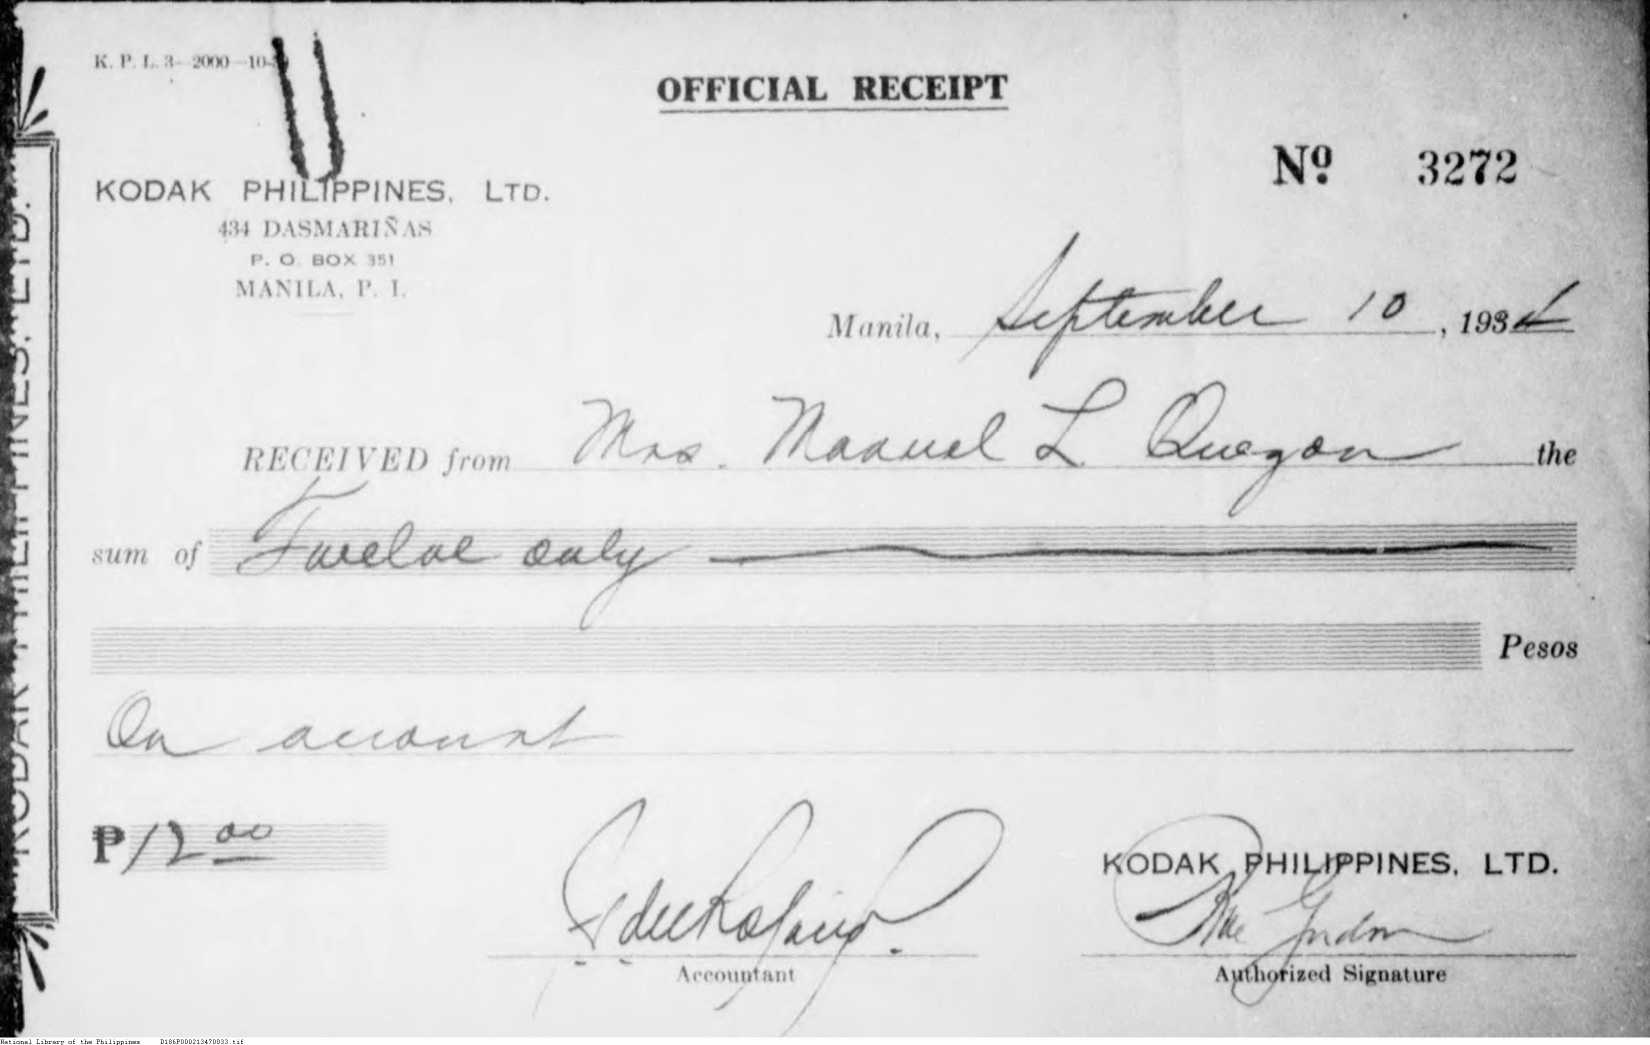 K. P. L. 3-2000-10-
OFFICIAL RECEIPT
Nº. 3272
KODAK PHILIPPINES, LTD.
434 DASMARIÑAS
P. O. BOX 351
MANILA, P. I.
Manila, September 10, 1934
RECEIVED from Mrs. Manuel L Quezon the
sum of Twelve only
Pesos
On account
₱12.00
KODAK PHILIPPINES, LTD.
Accountant
Authorized Signature
KODAK PHILIPPINES, LTD.
National Library of the Philippines D186P000213470033.tif